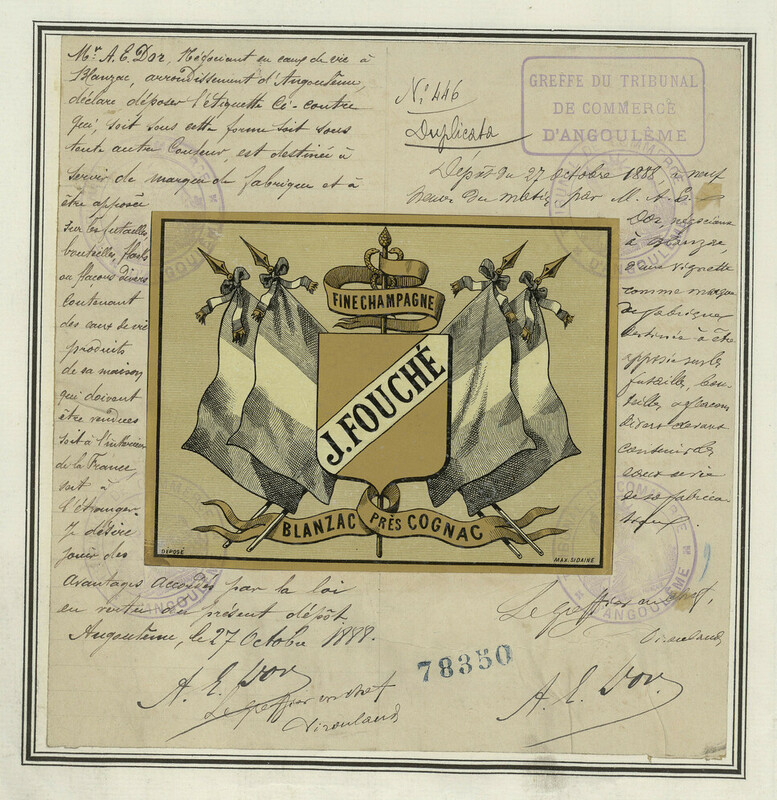 Mr A. E. Dor, Négociant en eaux de vie à
Blanzac, arrondissement d'Angoulême,
déclare déposer l'étiquette Ci-contre
qui, soit sous cette forme soit sous
toute autre Couleur, est destinée à
servir de marque de fabrique et à
être apposée
sur les futailles,
bouteilles, flacons
ou flacons divers
contenant
des eaux de vie
produits
de sa maison
qui doivent
être vendues
soit à l'intérieur
de la France,
soit à
l'étranger.
Je désire
jouir des
avantages accordés par la loi
en vertu du présent dépôt.
Angoulême, le 27 Octobre 1888.
A. E. Dor
Le greffier en chef
No 446
Duplicata
GREFFE DU TRIBUNAL
DE COMMERCE
D'ANGOULÊME
Dépôt du 27 octobre 1888 à neuf
heures du matin par M. A. E.
Dor négociant
à Blanzac,
d'une vignette
comme marque
de fabrique
destinée à être
apposée sur les
futailles, bou-
teilles & flacons
divers devant
contenir les
eaux de vie
de sa fabrica-
tion.
Le greffier en chef,
A. E. Dor
FINE CHAMPAGNE
J. FOUCHÉ
BLANZAC PRÈS COGNAC
DÉPOSÉ
MAX. SIDAINE
78350